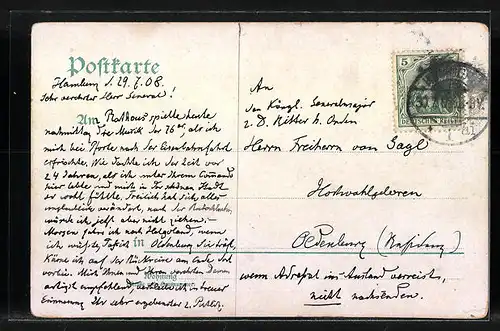 Postkarte
Hamburg d. 29.7.08.
Sehr verehrter Herr General!
Am Rathaus spielte heute
nachmittag die Musik der 76er, als ich
mich bei Pforte nach der Eisenbahnfahrt
erfrischte. Wie dachte ich der Zeit vor
24 Jahren, als ich unter Ihrem Commando
hier lebte und mich in der schönen Stadt
so wohl fühlte. Freilich hat sich alles
unglaublich verändert, nach der
würde ich jetzt aber nicht ziehen.
Morgen fahre ich nach Helgoland, wenn
ich wüsste, dass ich in Oldenburg Sie träfe,
käme ich auf der Rückreise am Ende
vorbei. Mit Ihnen und Ihren verehrten Damen
artigst empfohlend, in treuer
Erinnerung Ihr sehr ergebenster
An
in
Wohnung
5
DEUTSCHES REICH
An
den Königl. Generalmajor
z. D. Ritter h. Orden
Herrn Freiherrn von Gagl
Hochwohlgeboren
Oldenburg
wenn Adressat ins Ausland verreist,
nicht nachsenden.